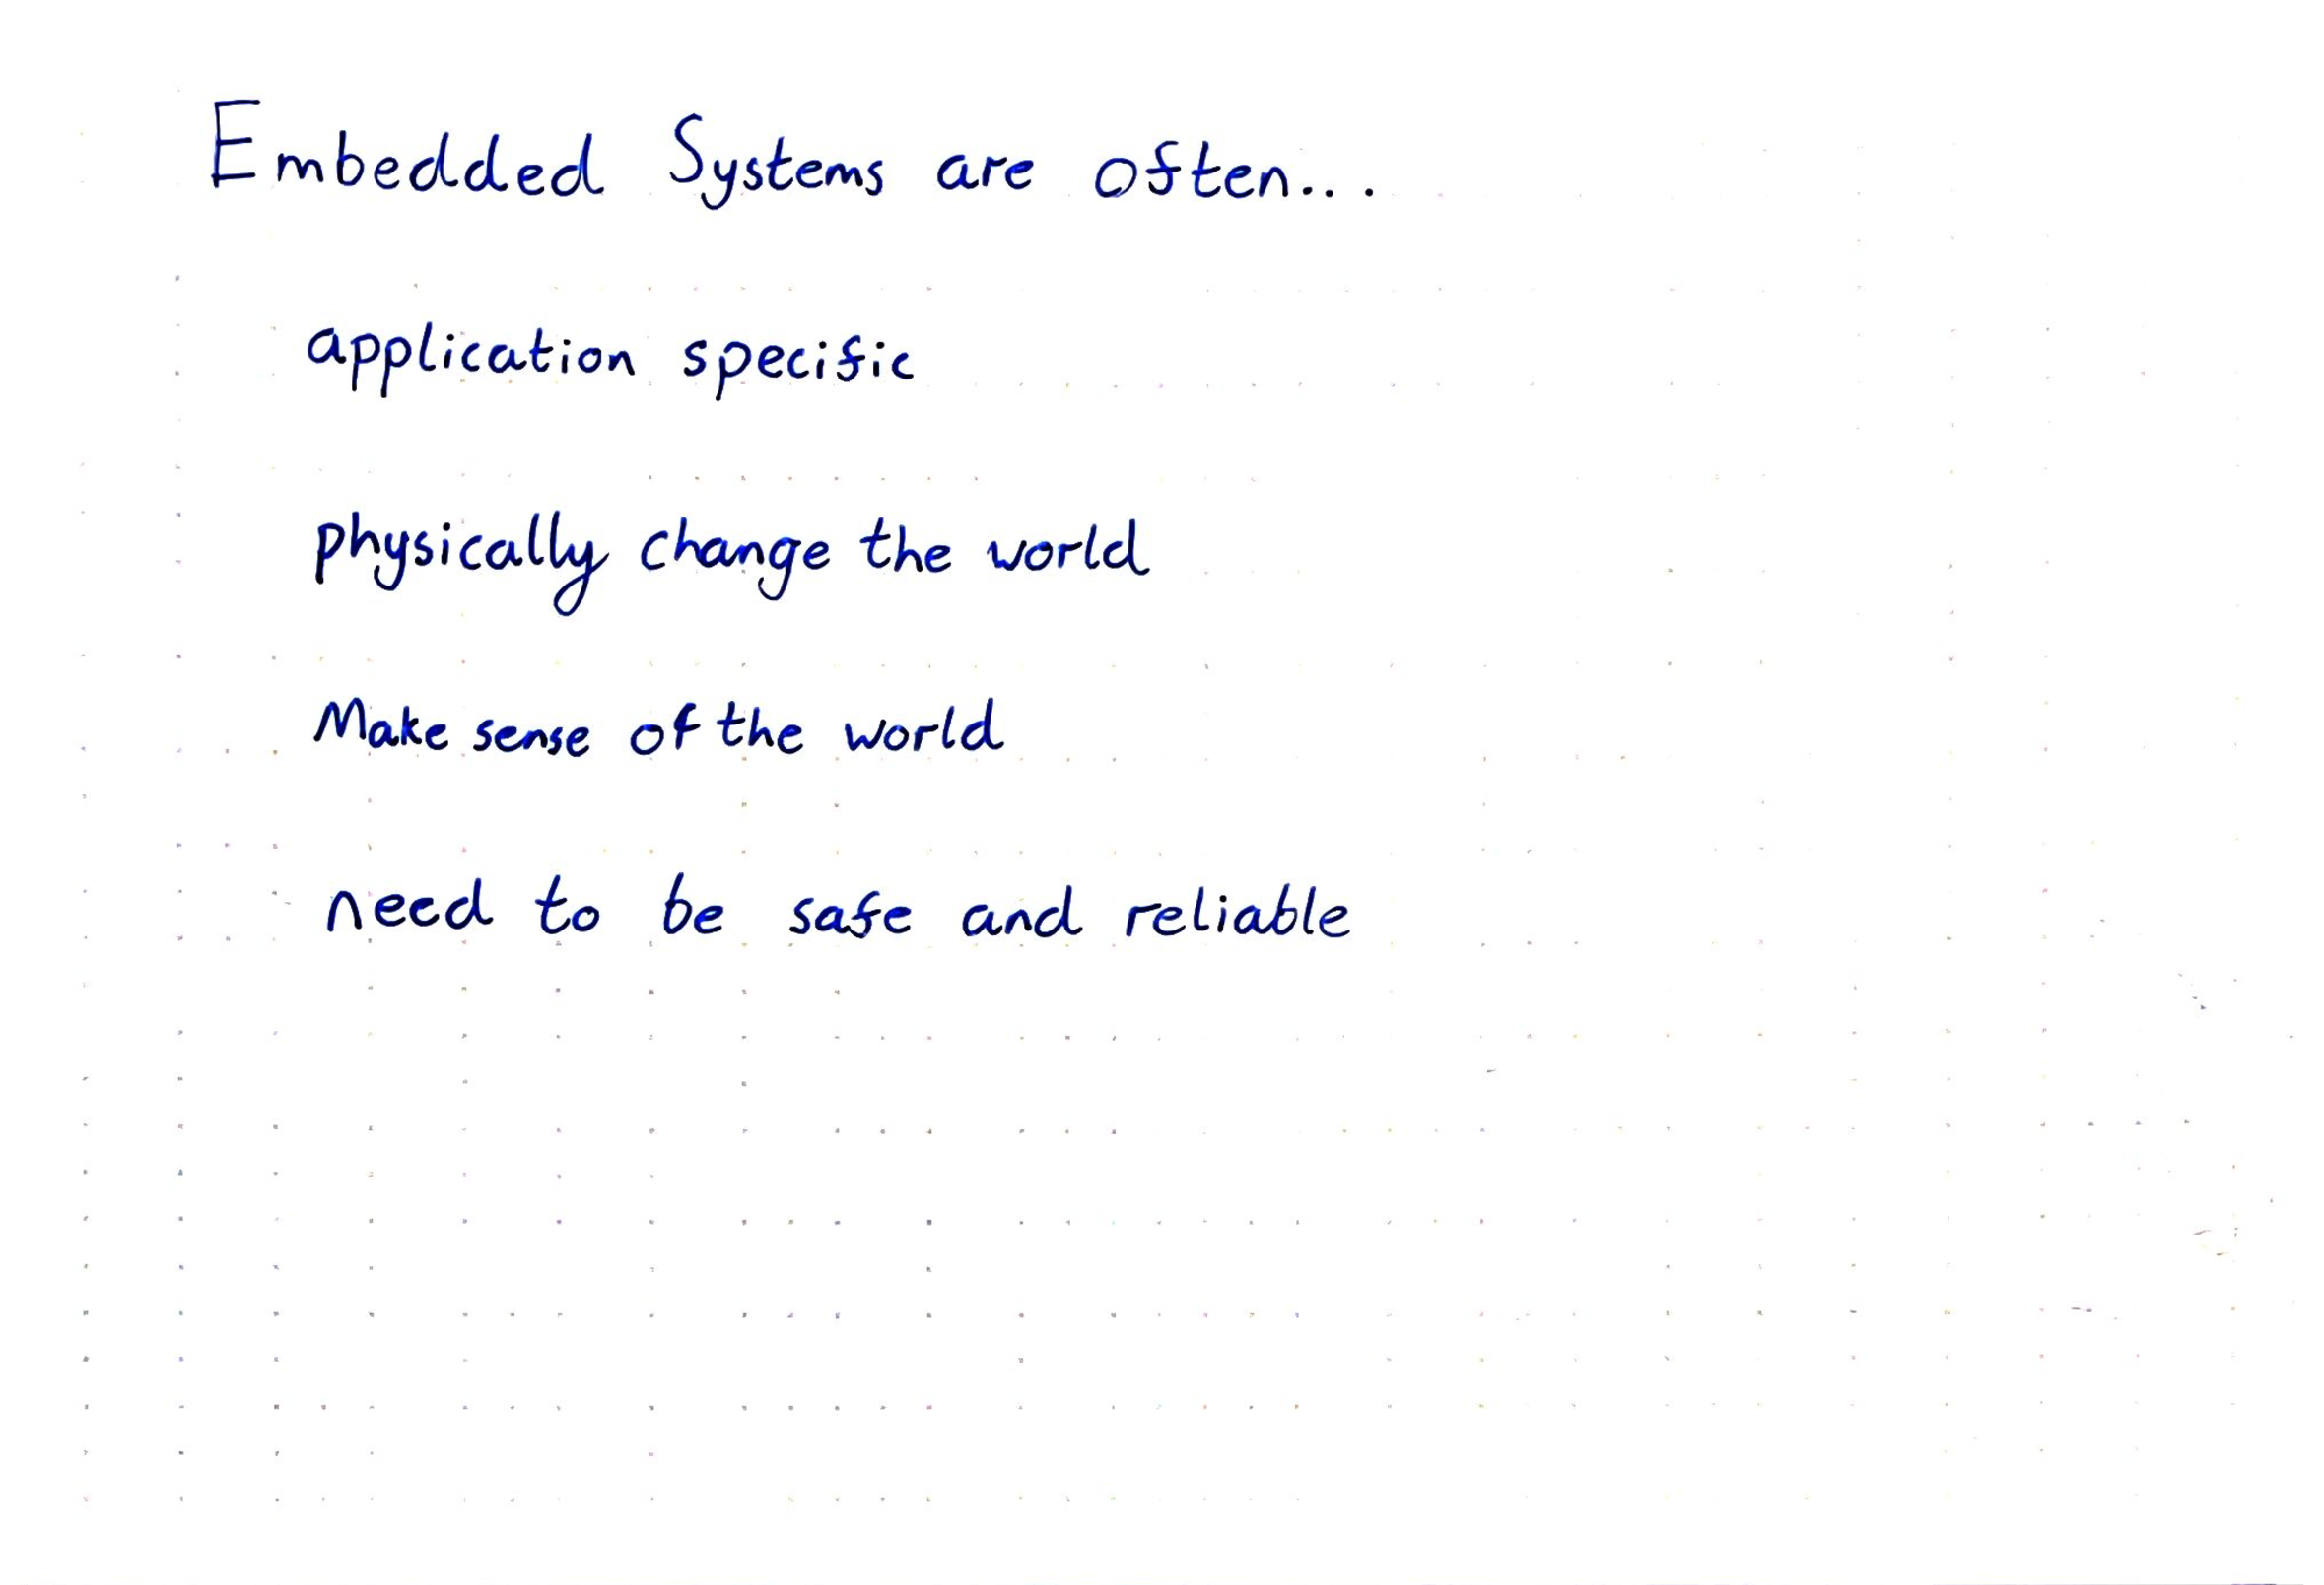 Embedded Systems are often...
application specific
physically change the world
Make sense of the world
need to be safe and reliable